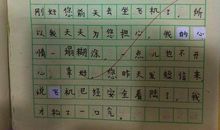 刚好您前天去坐飞机了，所
以我天天为您担心，我的心
情一塌糊涂，一点儿也不开
心，幸好，您昨天发短信来
说飞机已经安全着陆了，我
才松了一口气。